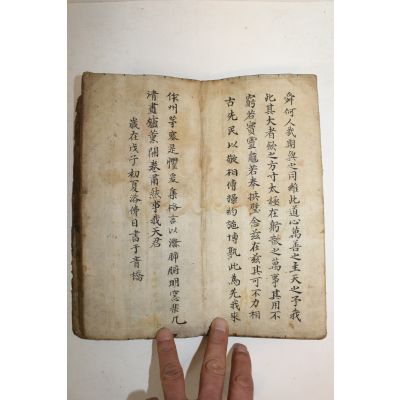 舜何人哉期與之同維此道心萬善之主天之予我
此其大者斂之方寸太極在躬散之萬事其用不
窮若寶靈龜若奉拱璧念玆在玆其可不力相
古先民以敬相傳操約施博孰此爲先我來
作州茅塞是懼爰集格言以滌肺腑明窓棐几
清晝爐薰開卷肅然事我天君
歲在戊子初夏浴佛日書于青橋